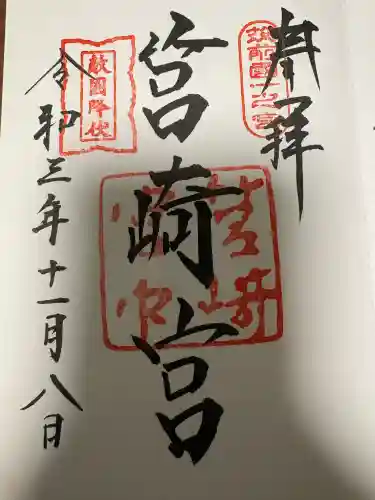 奉拝
筑前國一之宮
筥崎宮
筥崎宮印
敵國降伏
令和三年十一月八日